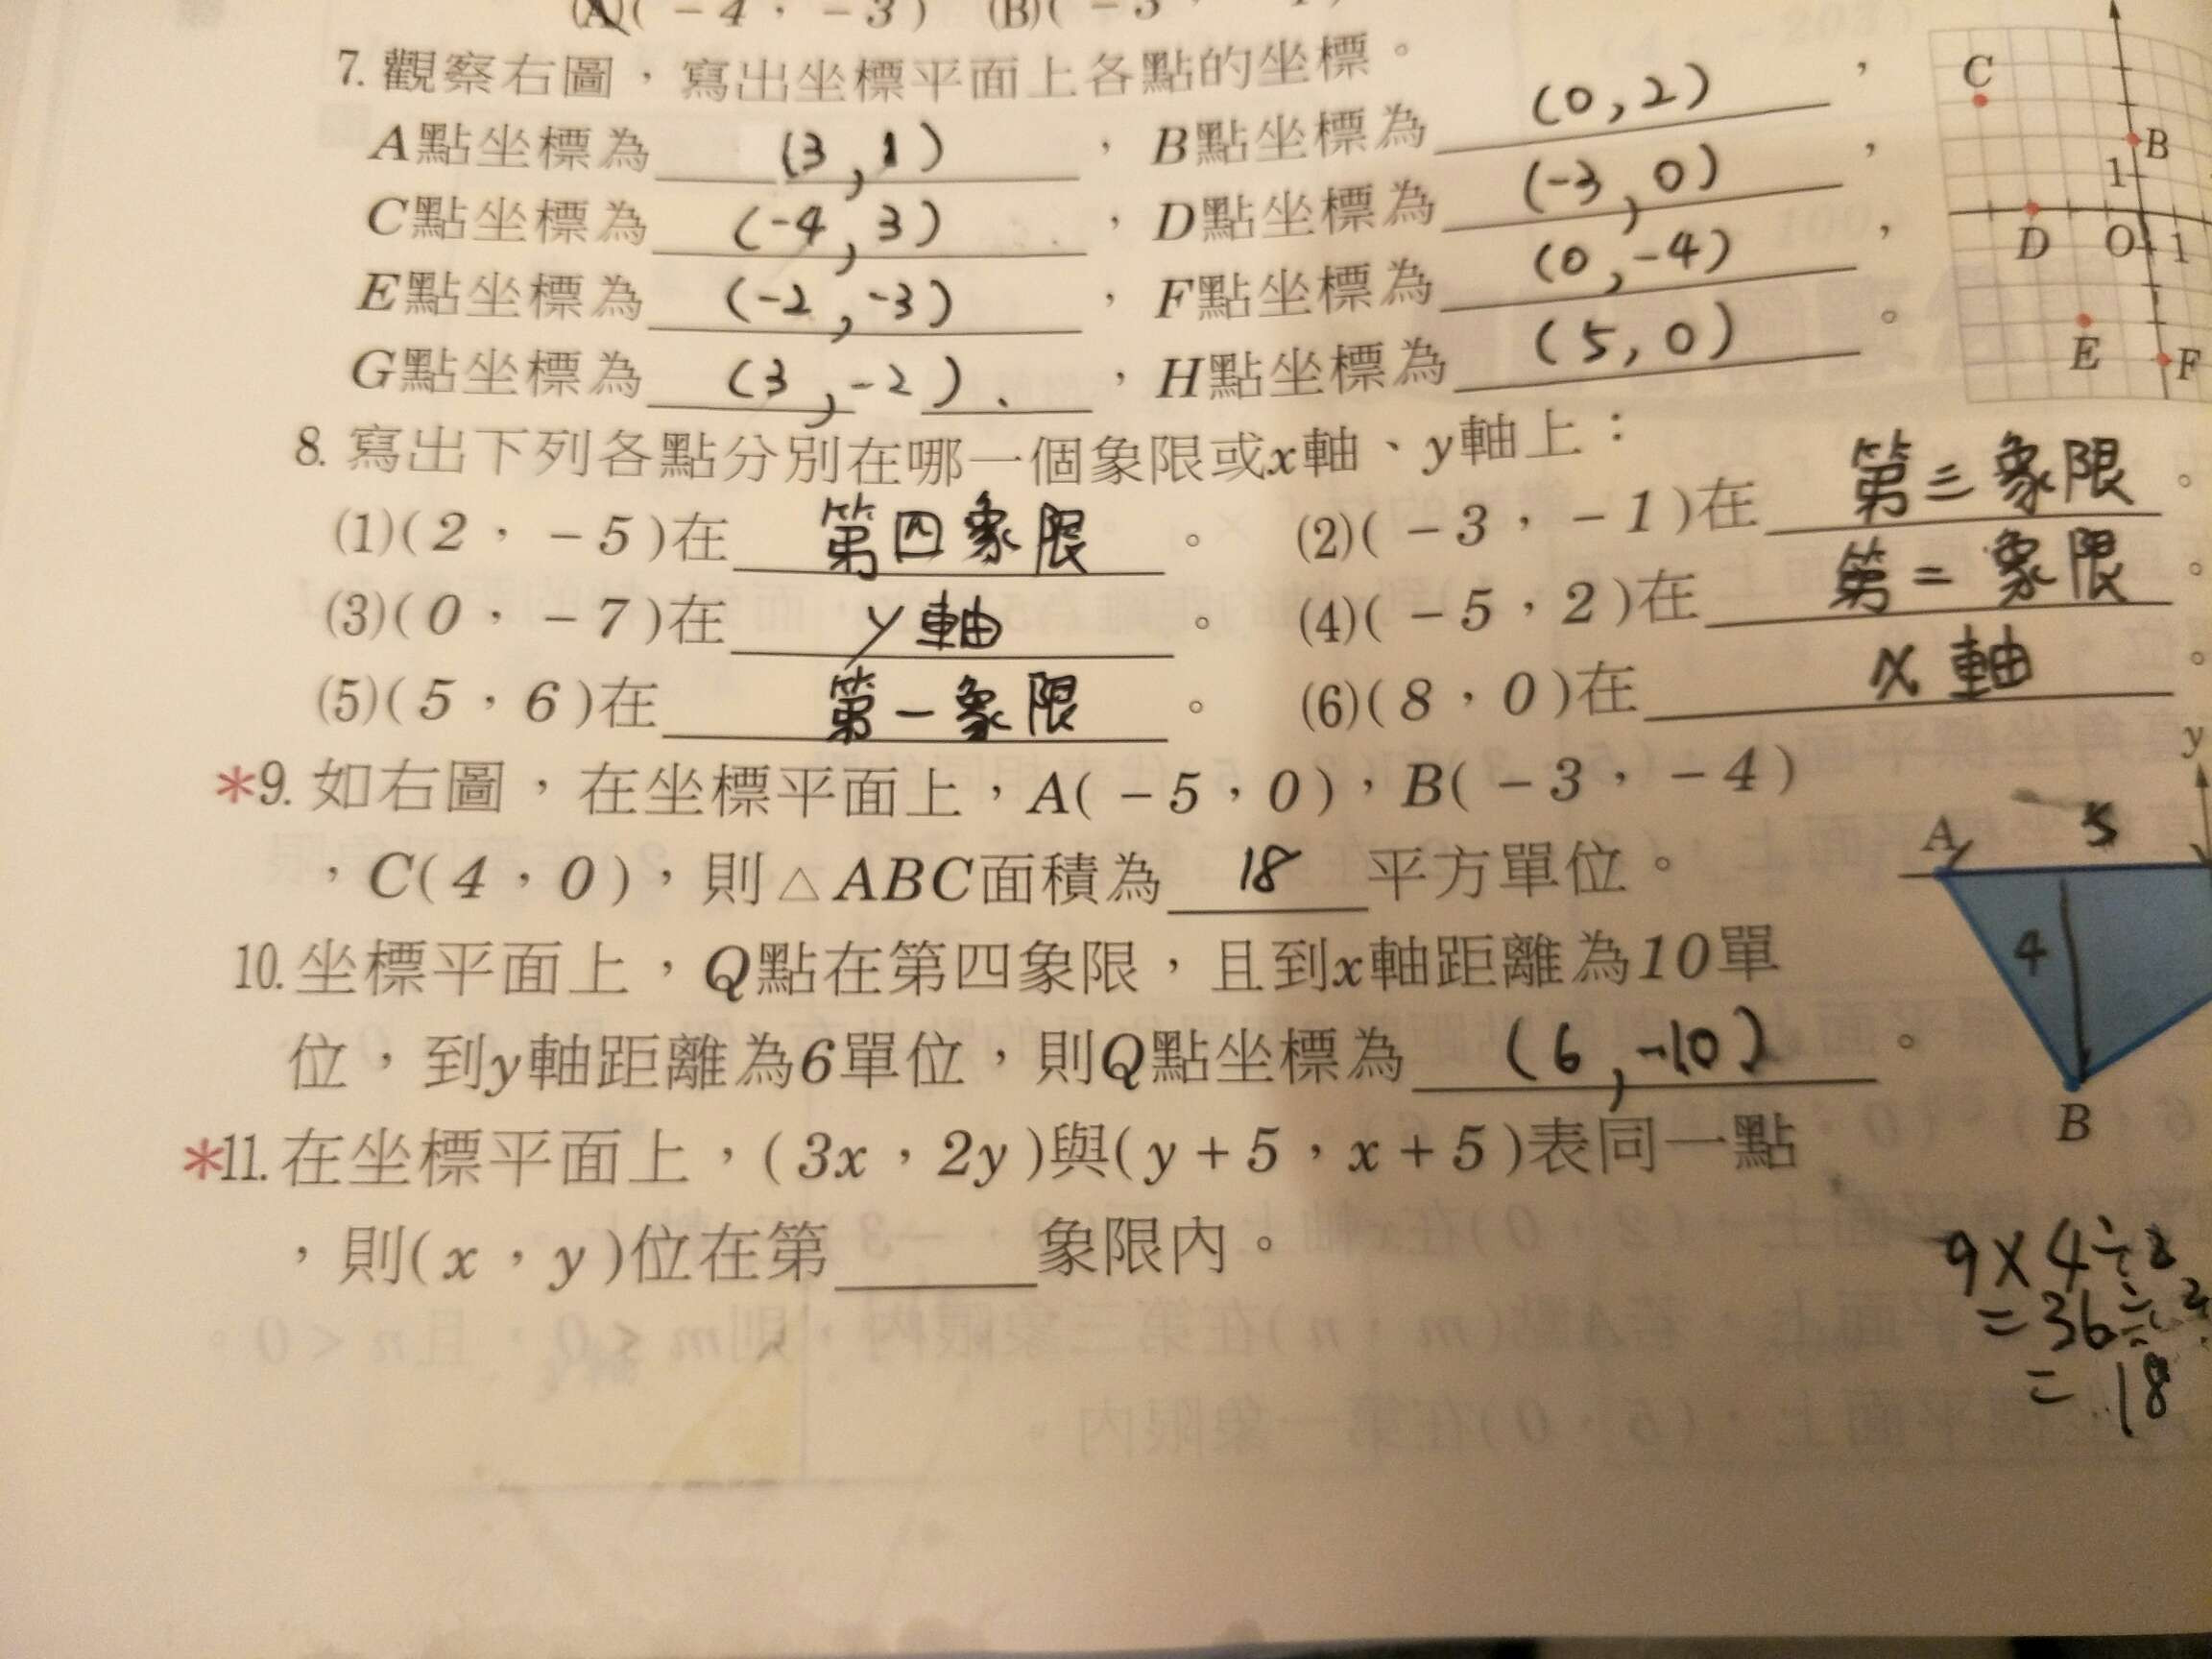 (A)( -4 , -3 ) (B)( -3 ,
7. 觀察右圖，寫出坐標平面上各點的坐標。
A點坐標為 (3,1) ，B點坐標為 (0,2) ，
C點坐標為 (-4,3) ，D點坐標為 (-3,0) ，
E點坐標為 (-2,-3) ，F點坐標為 (0,-4) ，
G點坐標為 (3,-2) ，H點坐標為 (5,0) 。
C
B
1
D O 1
E F
8. 寫出下列各點分別在哪一個象限或x軸、y軸上：
(1)( 2 , -5 )在 第四象限 。 (2)( -3 , -1 )在 第三象限 。
(3)( 0 , -7 )在 y軸 。 (4)( -5 , 2 )在 第二象限 。
(5)( 5 , 6 )在 第一象限 。 (6)( 8 , 0 )在 x軸 。
*9. 如右圖，在坐標平面上，A( -5 , 0 )，B( -3 , -4 )
，C( 4 , 0 )，則△ABC面積為 18 平方單位。
y
A 5
4
B
10. 坐標平面上，Q點在第四象限，且到x軸距離為10單
位，到y軸距離為6單位，則Q點坐標為 (6,-10) 。
*11. 在坐標平面上，( 3x , 2y )與( y+5 , x+5 )表同一點
，則( x , y )位在第 象限內。
9×4÷2
=36÷2
=18